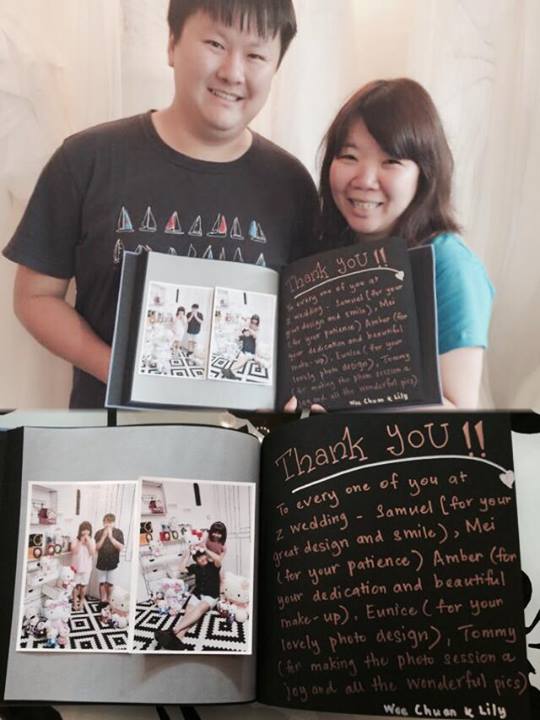 Thank YOU !!
To every one of you at
Z wedding - Samuel [for your
great design and smile), Mei
(for your patience) Amber (for
your dedication and beautiful
make-up), Eunice (for your
lovely photo design), Tommy
(for making the photo session a
joy and all the wonderful pics)
Wee Chuan & Lily
Thank YOU !!
To every one of you at
Z wedding - Samuel [for your
great design and smile), Mei
(for your patience) Amber (for
your dedication and beautiful
make-up), Eunice (for your
lovely photo design), Tommy
(for making the photo session a
joy and all the wonderful pics)
Wee Chuan & Lily